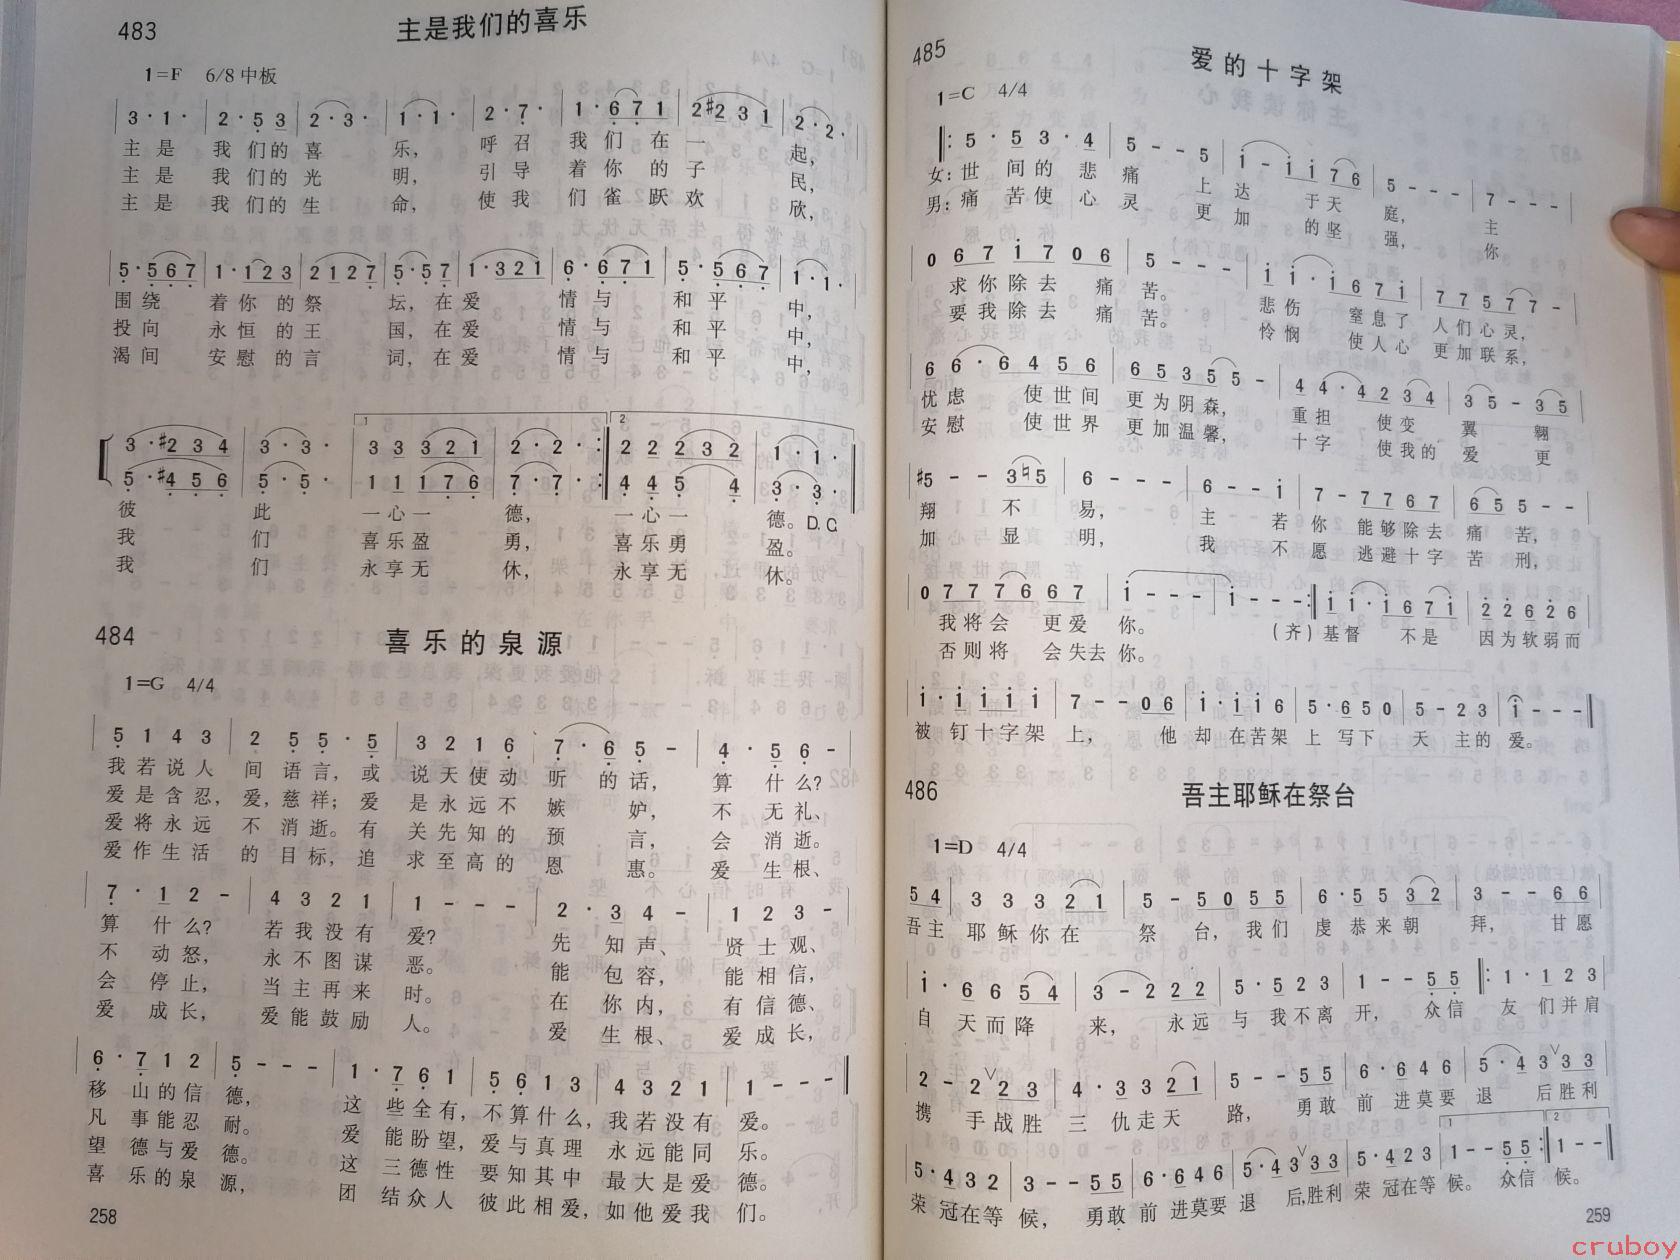 483
主是我们的喜乐
1=F 6/8 中板
3·1· 2·5 3 2·3· 1·1· 2·7· 1·6 7 1 2 #2 3 1 2·2·
主是 我们的喜 乐, 呼召 我们在一 起,
主是 我们的光 明, 引导 着你的子 民,
主是 我们的生 命, 使我 们雀跃欢 欣,
5·5 6 7 1·1 2 3 2 1 2 7 5·5 7 1·3 2 1 6·6 7 1 5·5 6 7 1·1·
围绕 着你的祭 坛,在爱 情与 和平 中,
投向 永恒的王 国,在爱 情与 和平 中,
渴间 安慰的言 词,在爱 情与 和平 中,
1 2
3·#2 3 4 3·3· 3 3 3 2 1 2·2· 2 2 2 3 2 1·1·
5·#4 5 6 5·5· 1 1 1 7 6 7·7· 4 4 5 4 3·3·
彼 此 一心一 德, 一心一 德。D.C
我 们 喜乐盈 勇, 喜乐勇 盈。
我 们 永享无 休, 永享无 休。
484
喜乐的泉源
1=G 4/4
5 1 4 3 2 5 5·5 3 2 1 6 7·6 5 - 4·5 6 -
我若说人 间语言,或 说天使动 听的话, 算什么?
爱是含忍, 爱,慈祥;爱 是永远不 嫉妒, 不无礼、
爱将永远 不消逝。有 关先知的 预言, 会消逝。
爱作生活 的目标,追 求至高的 恩惠。 爱生根、
7·1 2 - 4 3 2 1 1 - - - 2·3 4 - 1 2 3 -
算什么? 若我没有 爱? 先知声、 贤士观、
不动怒, 永不图谋 恶。 能包容, 能相信,
会停止, 当主再来 时。 在你内, 有信德、
爱成长, 爱能鼓励 人。 爱生根、 爱成长,
6·7 1 2 5 - - - 1·7 6 1 5 6 1 3 4 3 2 1 1 - - -
移山的信 德, 这些全有, 不算什么, 我若没有 爱。
凡事能忍 耐。 爱能盼望, 爱与真理 永远能同 乐。
望德与爱 德。 这三德性 要知其中 最大是爱 德。
喜乐的泉 源, 团结众人 彼此相爱, 如他爱我 们。
258
485
爱的十字架
1=C 4/4
5·5 3·4 5 - - 5 1 - 1 1 7 6 5 - - - 7 - - -
女:世间的悲 痛 上 达于天 庭, 主
男:痛苦使心 灵 更 加的坚 强, 你
0 6 7 1 7 0 6 5 - - - 1 1·1 6 7 1 7 7 5 7 7 -
求你除去痛 苦。 悲伤窒息了 人们心灵,
要我除去痛 苦。 怜悯使人心 更加联系,
6 6·6 4 5 6 6 5 3 5 5 - 4 4·4 2 3 4 3 5 - 3 5
忧虑使世间 更为阴森, 重担使变 翼翱
安慰使世界 更加温馨, 十字使我的 爱更
#5 - - 3 ♮5 6 - - - 6 - - 1 7 - 7 7 6 7 6 5 5 -
翔不 易, 主若 你能够除去 痛苦,
加显 明, 我不 愿逃避十字 苦刑,
0 7 7 7 6 6 7 1 - - - 1 - - - 1 1·1 6 7 1 2 2 6 2 6
我将会更爱 你。 (齐)基督不是 因为软弱而
否则将会失去 你。
1·1 1 1 1 7 - - 0 6 1·1 1 6 5·6 5 0 5 - 2 3 1 - - -
被钉十字架 上, 他 却在苦架 上写下 天主的 爱。
486
吾主耶稣在祭台
1=D 4/4
5 4 3 3 3 2 1 5 - 5 0 5 5 6·5 5 3 2 3 - - 6 6
吾主 耶稣你在 祭台,我们 虔恭来朝 拜, 甘愿
1·6 6 5 4 3 - 2 2 2 5·5 2 3 1 - - 5 5 1·1 2 3
自天而降 来,永远 与我不离 开, 众信 友们并肩
2 - 2 2 3 4·3 3 2 1 5 - - 5 5 6·6 4 6 5·4 3 3 3
携手战胜 三仇走天 路, 勇敢 前进莫要 退后胜利
1 2
5·4 3 2 3 - - 5 5 6·6 4 6 5·4 3 3 3 5·4 2 3 1 - - 5 5 1 - -
荣冠在等 候, 勇敢 前进莫要 退后,胜利 荣冠在等 候。众信 候。
259
cruboy